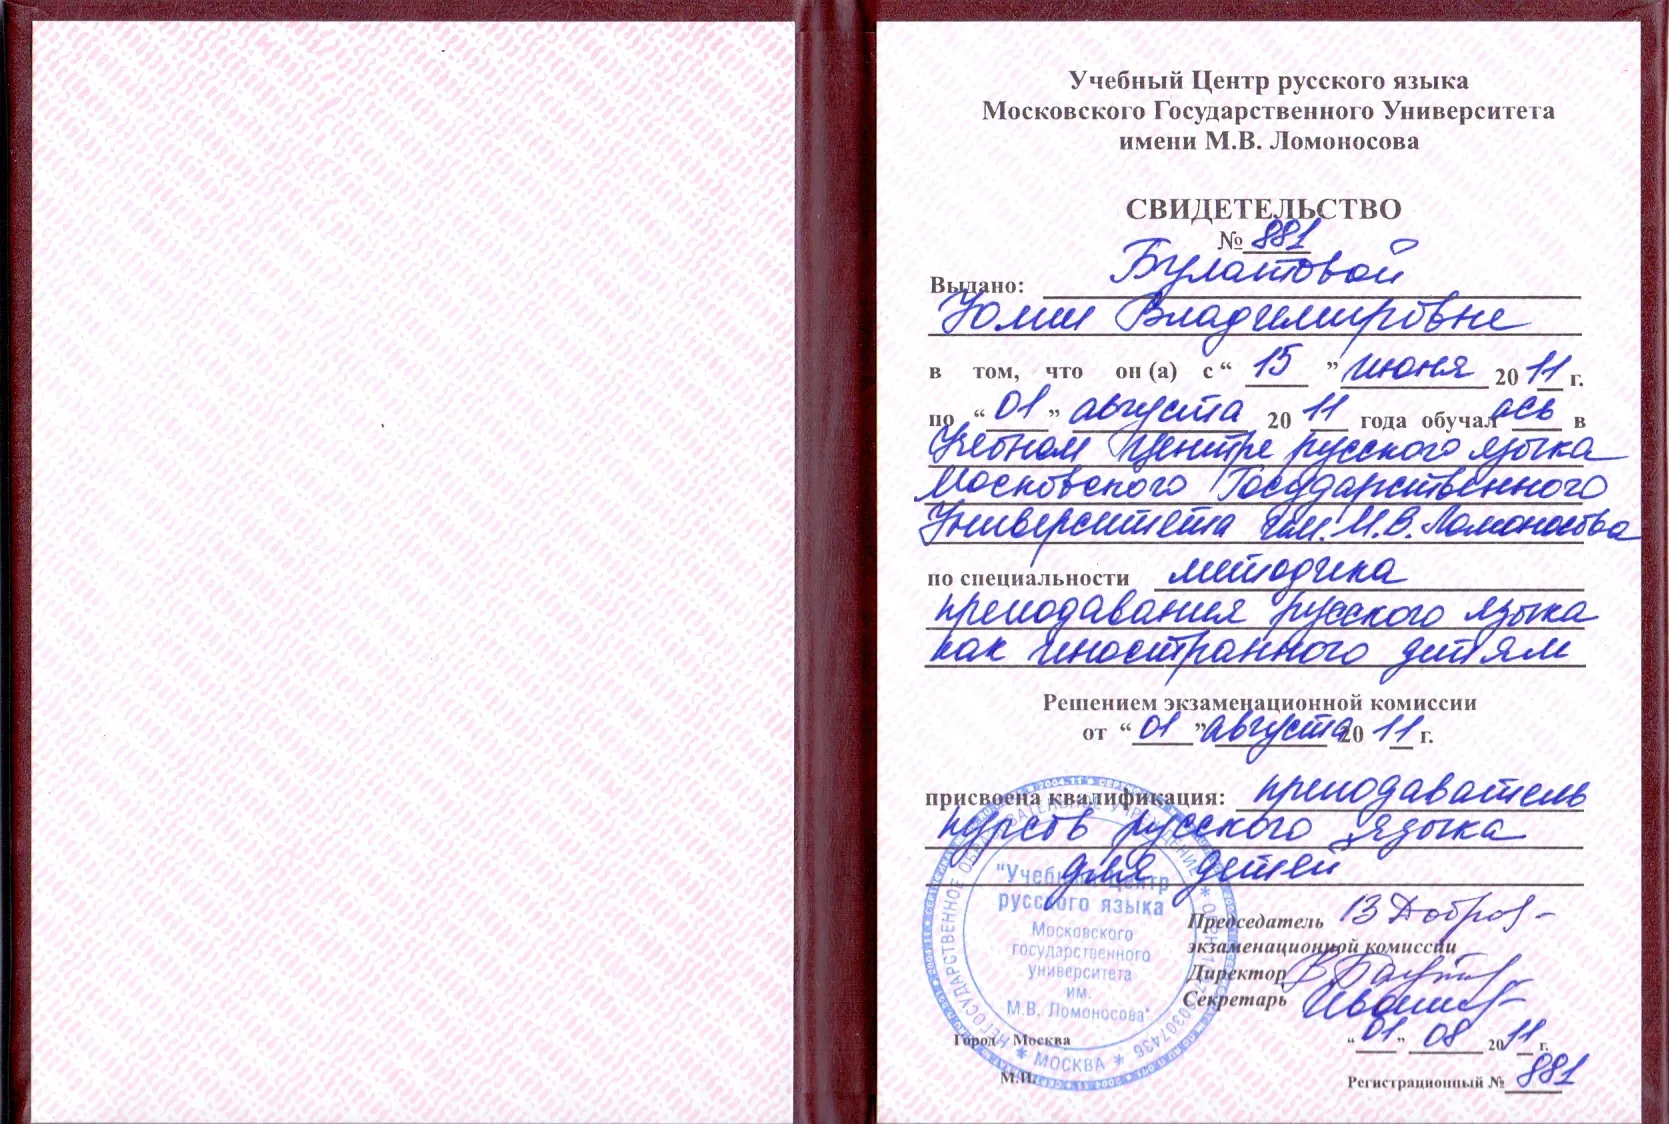 Учебный Центр русского языка
Московского Государственного Университета
имени М.В. Ломоносова
СВИДЕТЕЛЬСТВО
№ 881
Выдано: Булатовой
Юлии Владимировне
в том, что он (а) с “ 15 ” июня 20 11 г.
по “ 01 ” августа 20 11 года обучал ась в
Учебном Центре русского языка
Московского Государственного
Университета им. М.В. Ломоносова
по специальности методика
преподавания русского языка
как иностранного детям
Решением экзаменационной комиссии
от “ 01 ” августа 20 11 г.
присвоена квалификация: преподаватель
курсов русского языка
для детей
Председатель
экзаменационной комиссии
Директор
Секретарь
Город Москва “ 01 ” 08 20 11 г.
М.П. Регистрационный № 881
"Учебный Центр
русского языка
Московского
государственного
университета
им.
М.В. Ломоносова"
НЕГОСУДАРСТВЕННОЕ ОБРАЗОВАТЕЛЬНОЕ УЧРЕЖДЕНИЕ
* МОСКВА *